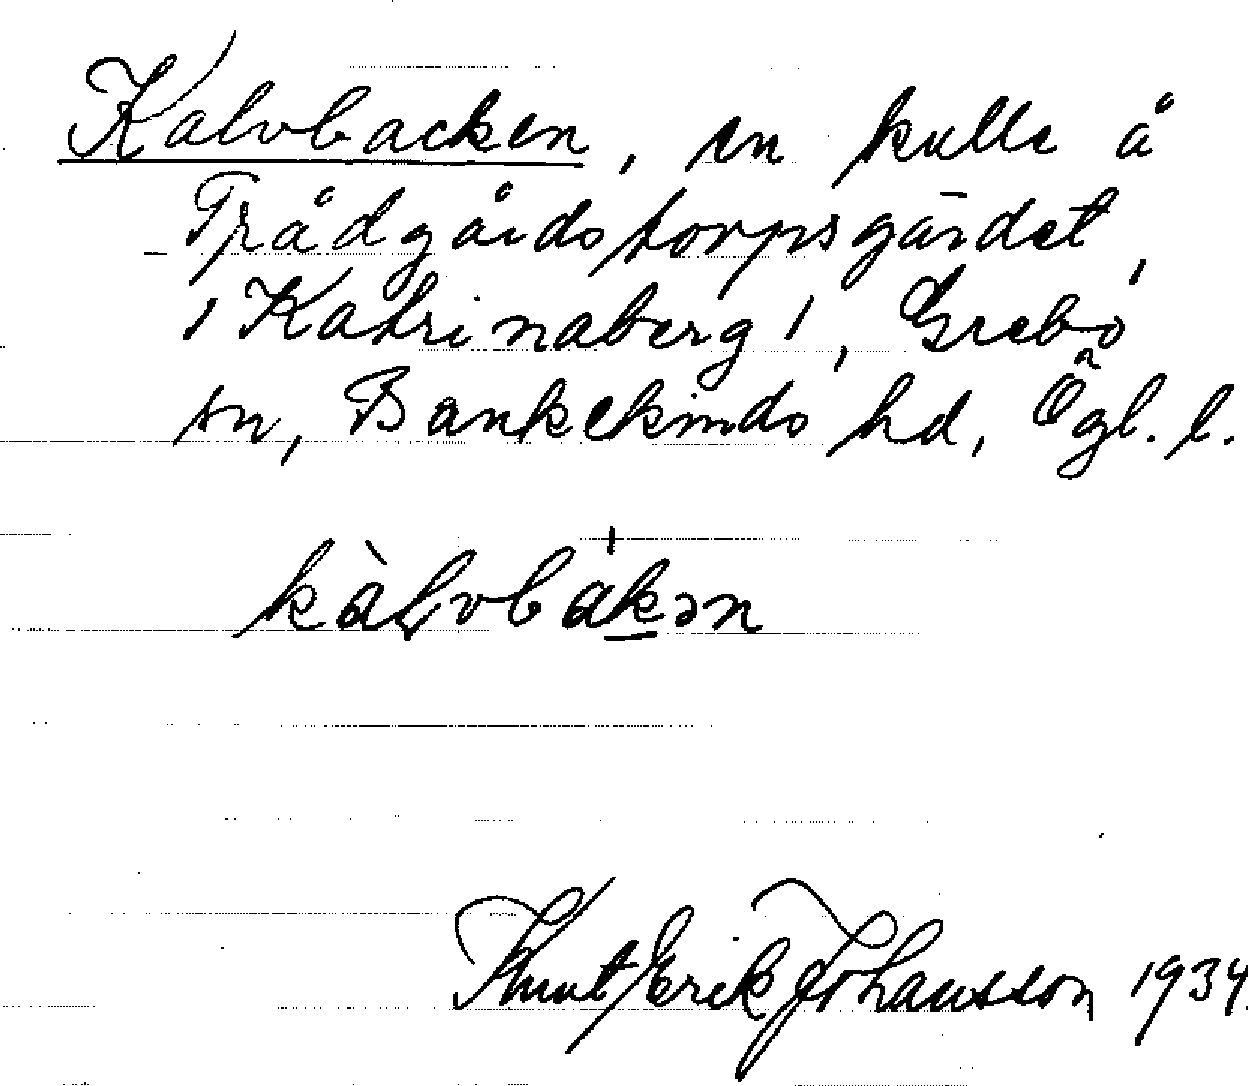 Kalvbacken, en kulle å
Trädgårdstorpsgärdet,
i Katrinaberg, Grebo
sn, Bankekinds hd, Ögl. l.
kàlvbakən
Knut Erik Johansson 1934.